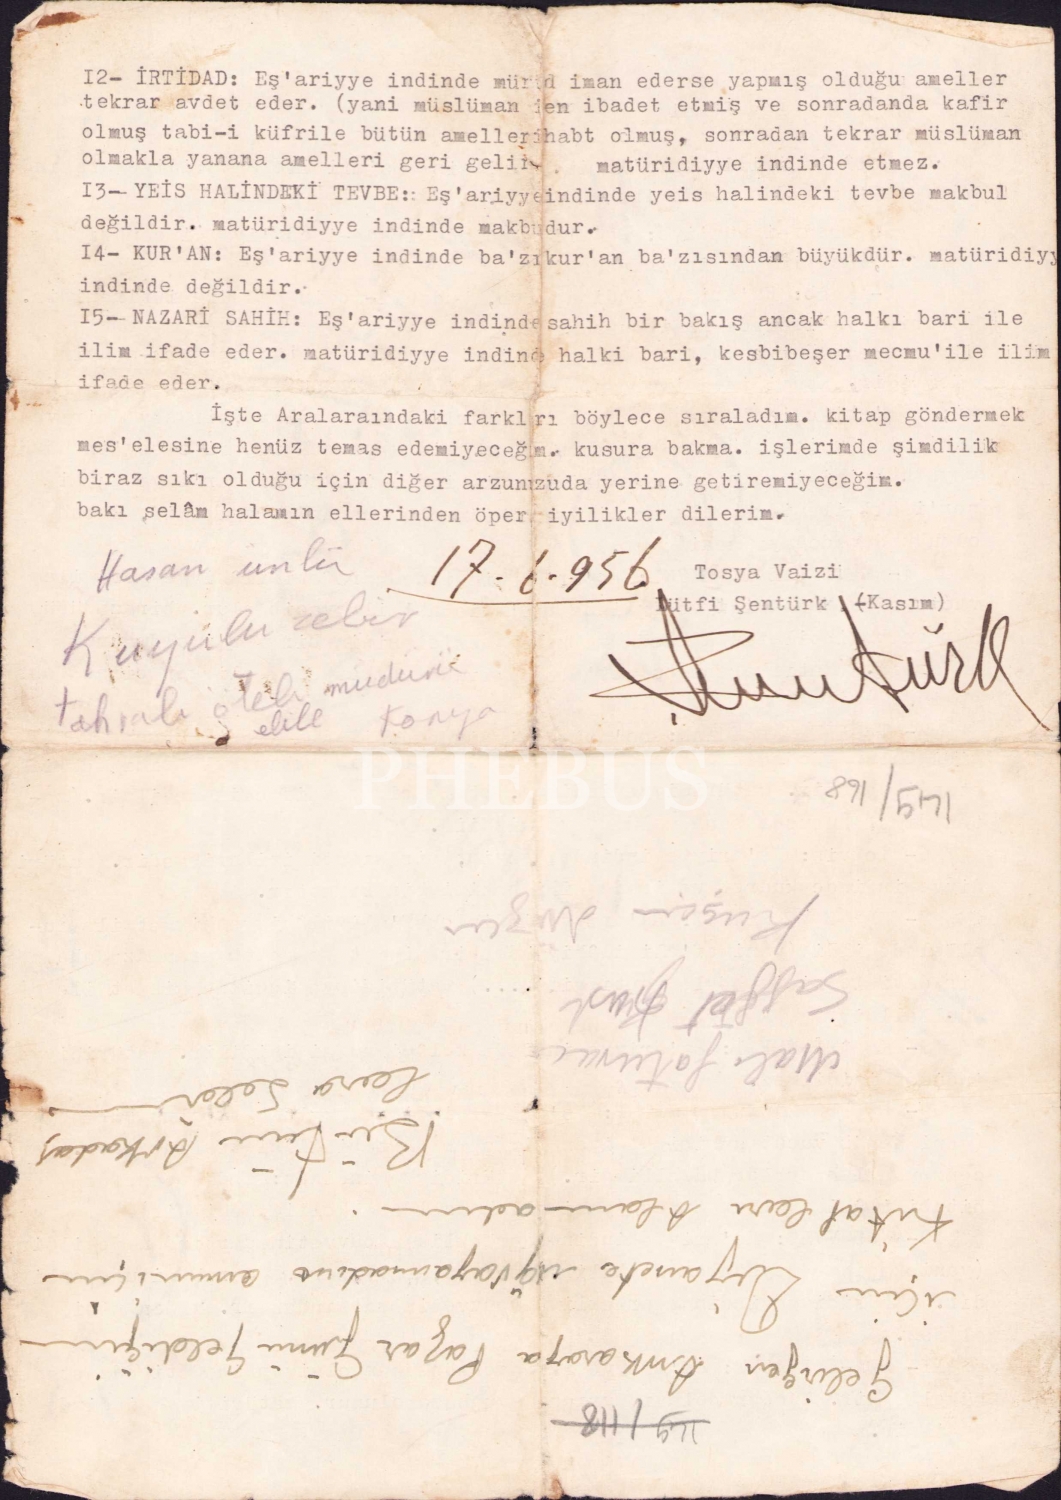 I2- İRTİDAD: Eş'ariyye indinde mürid iman ederse yapmış olduğu ameller
tekrar avdet eder. (yani müslüman iken ibadet etmiş ve sonradanda kafir
olmuş tabi-i küfrile bütün amelleri habt olmuş, sonradan tekrar müslüman
olmakla yanana amelleri geri gelir. matüridiyye indinde etmez.
I3- YEİS HALİNDEKİ TEVBE: Eş'ariyye indinde yeis halindeki tevbe makbul
değildir. matüridiyye indinde makbuldur.
I4- KUR'AN: Eş'ariyye indinde ba'zı kur'an ba'zısından büyükdür. matüridiyy
indinde değildir.
I5- NAZARİ SAHİH: Eş'ariyye indinde sahih bir bakış ancak halkı bari ile
ilim ifade eder. matüridiyye indinde halki bari, kesbibeşer mecmu'ile ilim
ifade eder.
İşte Aralaraındaki farkları böylece sıraladım. kitap göndermek
mes'elesine henüz temas edemiyeceğim. kusura bakma. işlerimde şimdilik
biraz sıkı olduğu için diğer arzunuzuda yerine getiremiyeceğim.
bakı selâm halamın ellerinden öper iyilikler dilerim.
17.6.956
Tosya Vaizi
Lütfi Şentürk (Kasım)
Şentürk
Hasan ünlü
Kuyulu zebir
tahsalı oteli müdürü
elile Konya
PHEBUS
149/168
Saffet
Malı faturacı
149/118
Gelirken Ankaraya Pazar Günü Geldiğim
için Diyanete uğrayamadım amuniçin
Kitapları Alamadım.
Bütün Arkadaş
lara Selam